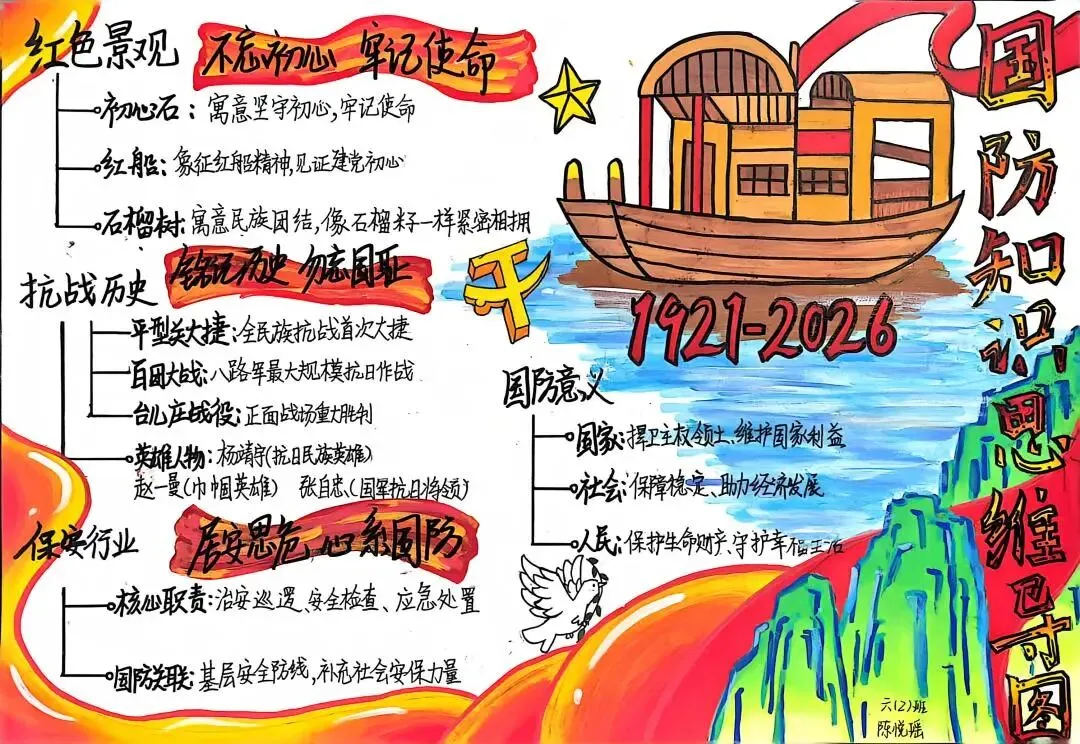 国防知识思维导图
红色景观
不忘初心 牢记使命
初心石：寓意坚守初心，牢记使命
红船：象征红船精神，见证建党初心
石榴树：寓意民族团结，像石榴籽一样紧密相拥
抗战历史
铭记历史 勿忘国耻
平型关大捷：全民族抗战首次大捷
百团大战：八路军最大规模抗日作战
台儿庄战役：正面战场重大胜利
英雄人物：杨靖宇(抗日民族英雄)
赵一曼(巾帼英雄) 张自忠、(国军抗日将领)
保安行业
居安思危，心系国防
核心职责：治安巡逻、安全检查、应急处置
国防关联：基层安全防线，补充社会安保力量
1921-2026
国防意义
国家：捍卫主权领土、维护国家利益
社会：保障稳定、助力经济发展
人民：保护生命财产、守护幸福生活
六(2)班
陈悦瑶